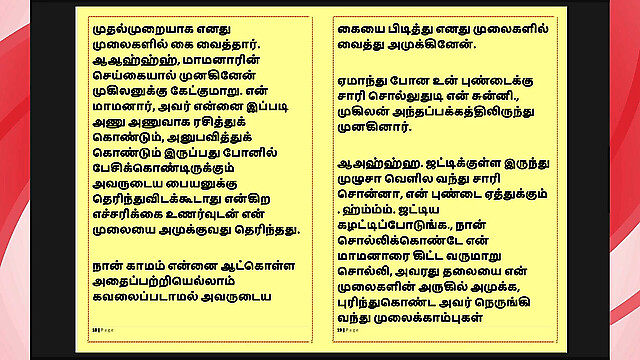 முதல்முறையாக எனது
முலைகளில் கை வைத்தார்.
ஆஆஹ்ஹ்ஹ், மாமனாரின்
செய்கையால் முனகினேன்
முகிலனுக்கு கேட்குமாறு. என்
மாமனார், அவர் என்னை இப்படி
அணு அணுவாக ரசித்துக்
கொண்டும், அனுபவித்துக்
கொண்டும் இருப்பது போனில்
பேசிக்கொண்டிருக்கும்
அவருடைய பையனுக்கு
தெரிந்துவிடக்கூடாது என்கிற
எச்சரிக்கை உணர்வுடன் என்
முலையை அமுக்குவது தெரிந்தது.
நான் காமம் என்னை ஆட்கொள்ள
அதைப்பற்றியெல்லாம்
கவலைப்படாமல் அவருடைய
18 | Page
கையை பிடித்து எனது முலைகளில்
வைத்து அமுக்கினேன்.
ஏமாந்து போன உன் புண்டைக்கு
சாரி சொல்லுதுடி என் சுன்னி.,
முகிலன் அந்தப்பக்கத்திலிருந்து
முனகினார்.
ஆஅஹ்ஹ்ஹ. ஜட்டிக்குள்ள இருந்து
முழுசா வெளில வந்து சாரி
சொன்னா, என் புண்டை ஏத்துக்கும்
. ஹ்ம்ம்ம். ஜட்டிய
கழட்டிப்போடுங்க., நான்
சொல்லிக்கொண்டே என்
மாமனாரை கிட்ட வருமாறு
சொல்லி, அவரது தலையை என்
முலைகளின் அருகில் அமுக்க,
புரிந்துகொண்ட அவர் நெருங்கி
வந்து முலைக்காம்புகள்
19 | Page